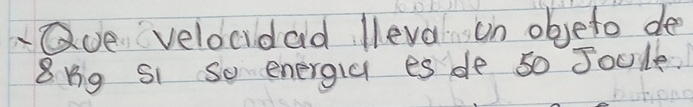 -Que velocidad lleva un objeto de
8 kg si su energia es de 50 Joule.